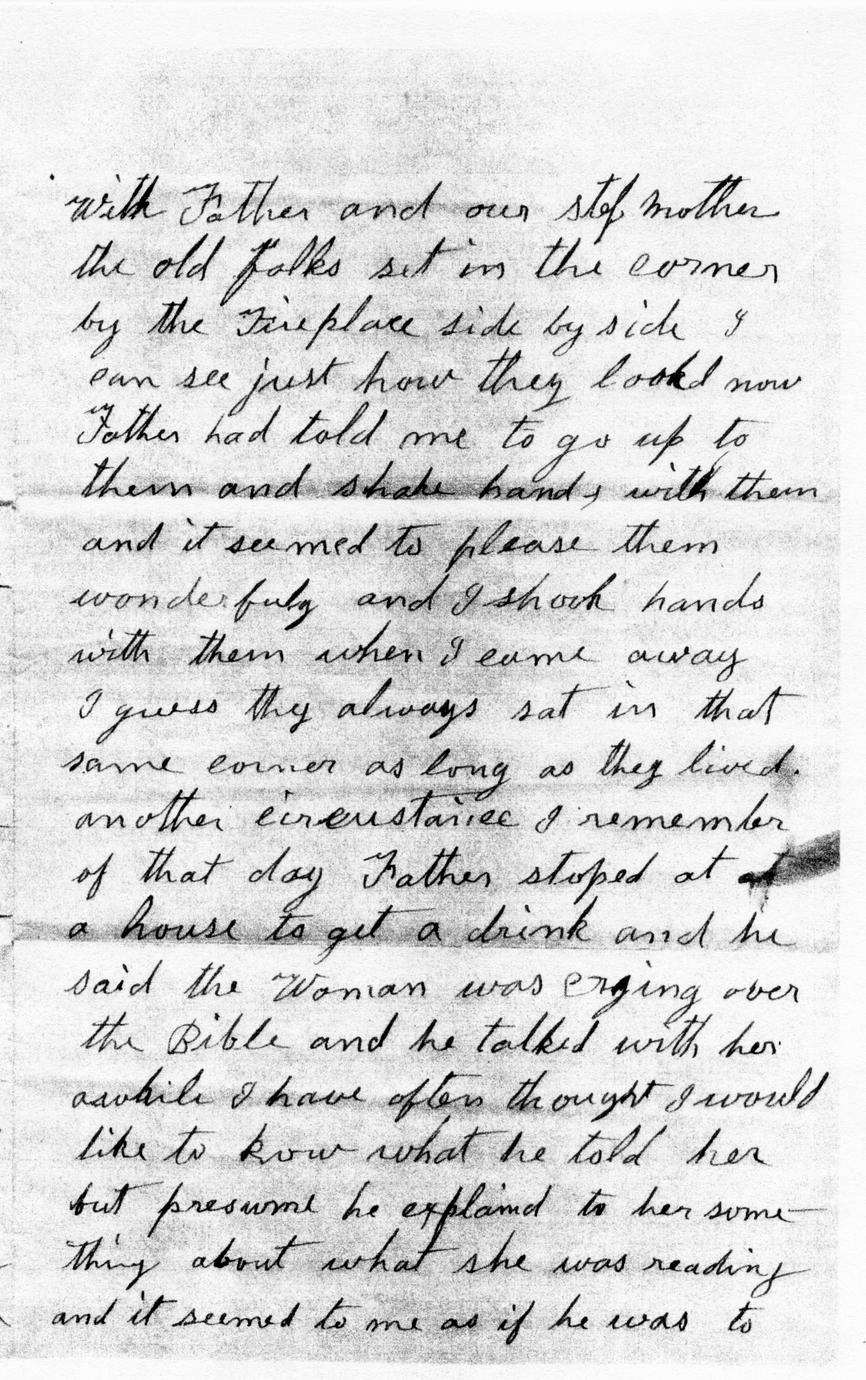 with Father and our step mother
the old folks set in the corner
by the Fireplace side by side I
can see just how they lookd now
my
Father had told me to go up to
them and shake hands with them
and it seemed to please them
wonderfuly and I shook hands
with them when I came away
I guess they always sat in that
same corner as long as they lived.
another circustance I remember
of that day Father stoped at at
a house to get a drink and he
said the Woman was crying over
the Bible and he talked with her
awhile I have often thought I would
like to know what he told her
but presume he explaind to her some
thing about what she was reading
and it seemed to me as if he was to